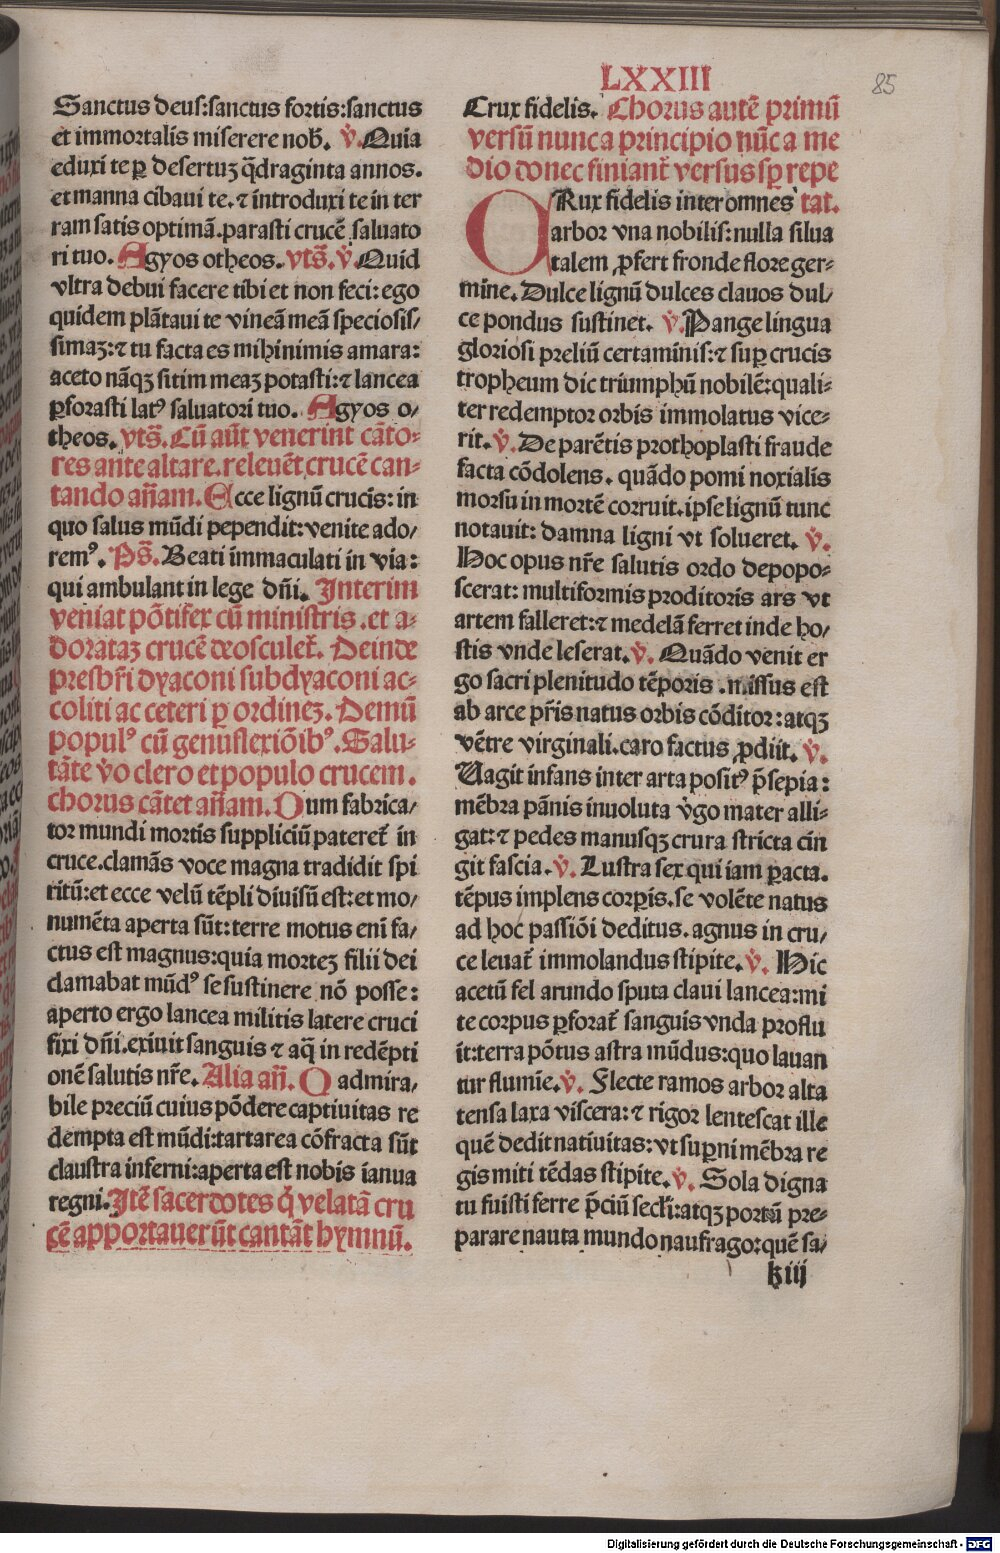 LXXIII
85
Sanctus deus:sanctus fortis:sanctus
et immortalis miserere nob̄. v̄. Quia
eduxi te ꝑ desertuꝫ q̄draginta annos.
et manna cibaui te.⁊ introduxi te in ter
ram satis optimā.parasti crucē saluato
ri tuo. Agyos otheos. vts̄. v̄. Quid
vltra debui facere tibi et non feci: ego
quidem plātaui te vineā meā speciosis/
simaꝫ:⁊ tu facta es mihi nimis amara:
aceto nāqꝫ sitim meaꝫ potasti:⁊ lancea
ꝑforasti latꝰ saluatori tuo. Agyos o/
theos. vts̄. Cū aūt venerint cāto-
res ante altare.releuēt crucē can-
tando añam. Ecce lignū crucis: in
quo salus mūdi pependit: venite ado/
remꝰ. Ps̄. Beati immaculati in via:
qui ambulant in lege dn̄i. Interim
veniat pōtifex cū ministris.et a-
dorataꝫ crucē deosculet̄. Deinde
presbr̄i dyaconi subdyaconi ac-
coliti ac ceteri ꝑ ordineꝫ. Demū
populꝰ cū genuflexiōibꝰ. Salu-
tāte v̄o clero et populo crucem.
chorus cātet añam. Dum fabrica/
tor mundi mortis suppliciū pateret̄ in
cruce.clamās voce magna tradidit spi
ritū:et ecce velū tēpli diuisū est:et mo/
numēta aperta sūt:terre motus enī fa/
ctus est magnus:quia morteꝫ filii dei
clamabat mūdꝰ se sustinere nō posse:
aperto ergo lancea militis latere cruci
fixi dn̄i.exiuit sanguis ⁊ aq̄ in redēpti
onē salutis nr̄e. Alia añ. O admira/
bile preciū cuius pōdere captiuitas re
dempta est mūdi:tartarea cōfracta sūt
claustra inferni:aperta est nobis ianua
regni. Itē sacerdotes q̄ velatā cru
cē apportauerūt cantāt hymnū.
Crux fidelis. Chorus autē primū
versū nunc a principio nūc a me
dio donec finiant̄ versus sꝑ repe
CRux fidelis inter omnes tat.
arbor vna nobilis: nulla silua
talem ꝓfert fronde flore ger-
mine. Dulce lignū dulces clauos dul/
ce pondus sustinet. v̄. Pange lingua
gloriosi preliū certaminis:⁊ suꝑ crucis
tropheum dic triumphū nobilē:quali-
ter redemptor orbis immolatus vice-
rit. v̄. De parētis prothoplasti fraude
facta cōdolens. quādo pomi noxialis
morsu in mortē corruit.ipse lignū tunc
notauit: damna ligni vt solueret. v̄.
Hoc opus nr̄e salutis ordo depopo-
scerat: multiformis proditoris ars vt
artem falleret:⁊ medelā ferret inde ho/
stis vnde leserat. v̄. Quādo venit er
go sacri plenitudo tēporis.missus est
ab arce pr̄is natus orbis cōditor:atqꝫ
vētre virginali.caro factus ꝓdiit. v̄.
Uagit infans inter arta positꝰ p̄sepia:
mēbra pānis inuoluta v̄go mater alli-
gat:⁊ pedes manusqꝫ crura stricta cin
git fascia. v̄. Lustra sex qui iam ꝑacta.
tēpus implens corꝑis.se volēte natus
ad hoc passiōi deditus. agnus in cru/
ce leuat̄ immolandus stipite. v̄. Hic
acetū fel arundo sputa claui lancea:mi
te corpus ꝑforat̄ sanguis vnda proflu
it:terra pōtus astra mūdus:quo lauan
tur flumīe. v̄. Flecte ramos arbor alta
tensa laxa viscera:⁊ rigor lentescat ille
quē dedit natiuitas:vt suꝑni mēbra re
gis miti tēdas stipite. v̄. Sola digna
tu fuisti ferre p̄ciū secli:atqꝫ portū pre-
parare nauta mundo naufrago:quē sa/
k iij
Digitalisierung gefördert durch die Deutsche Forschungsgemeinschaft - DFG